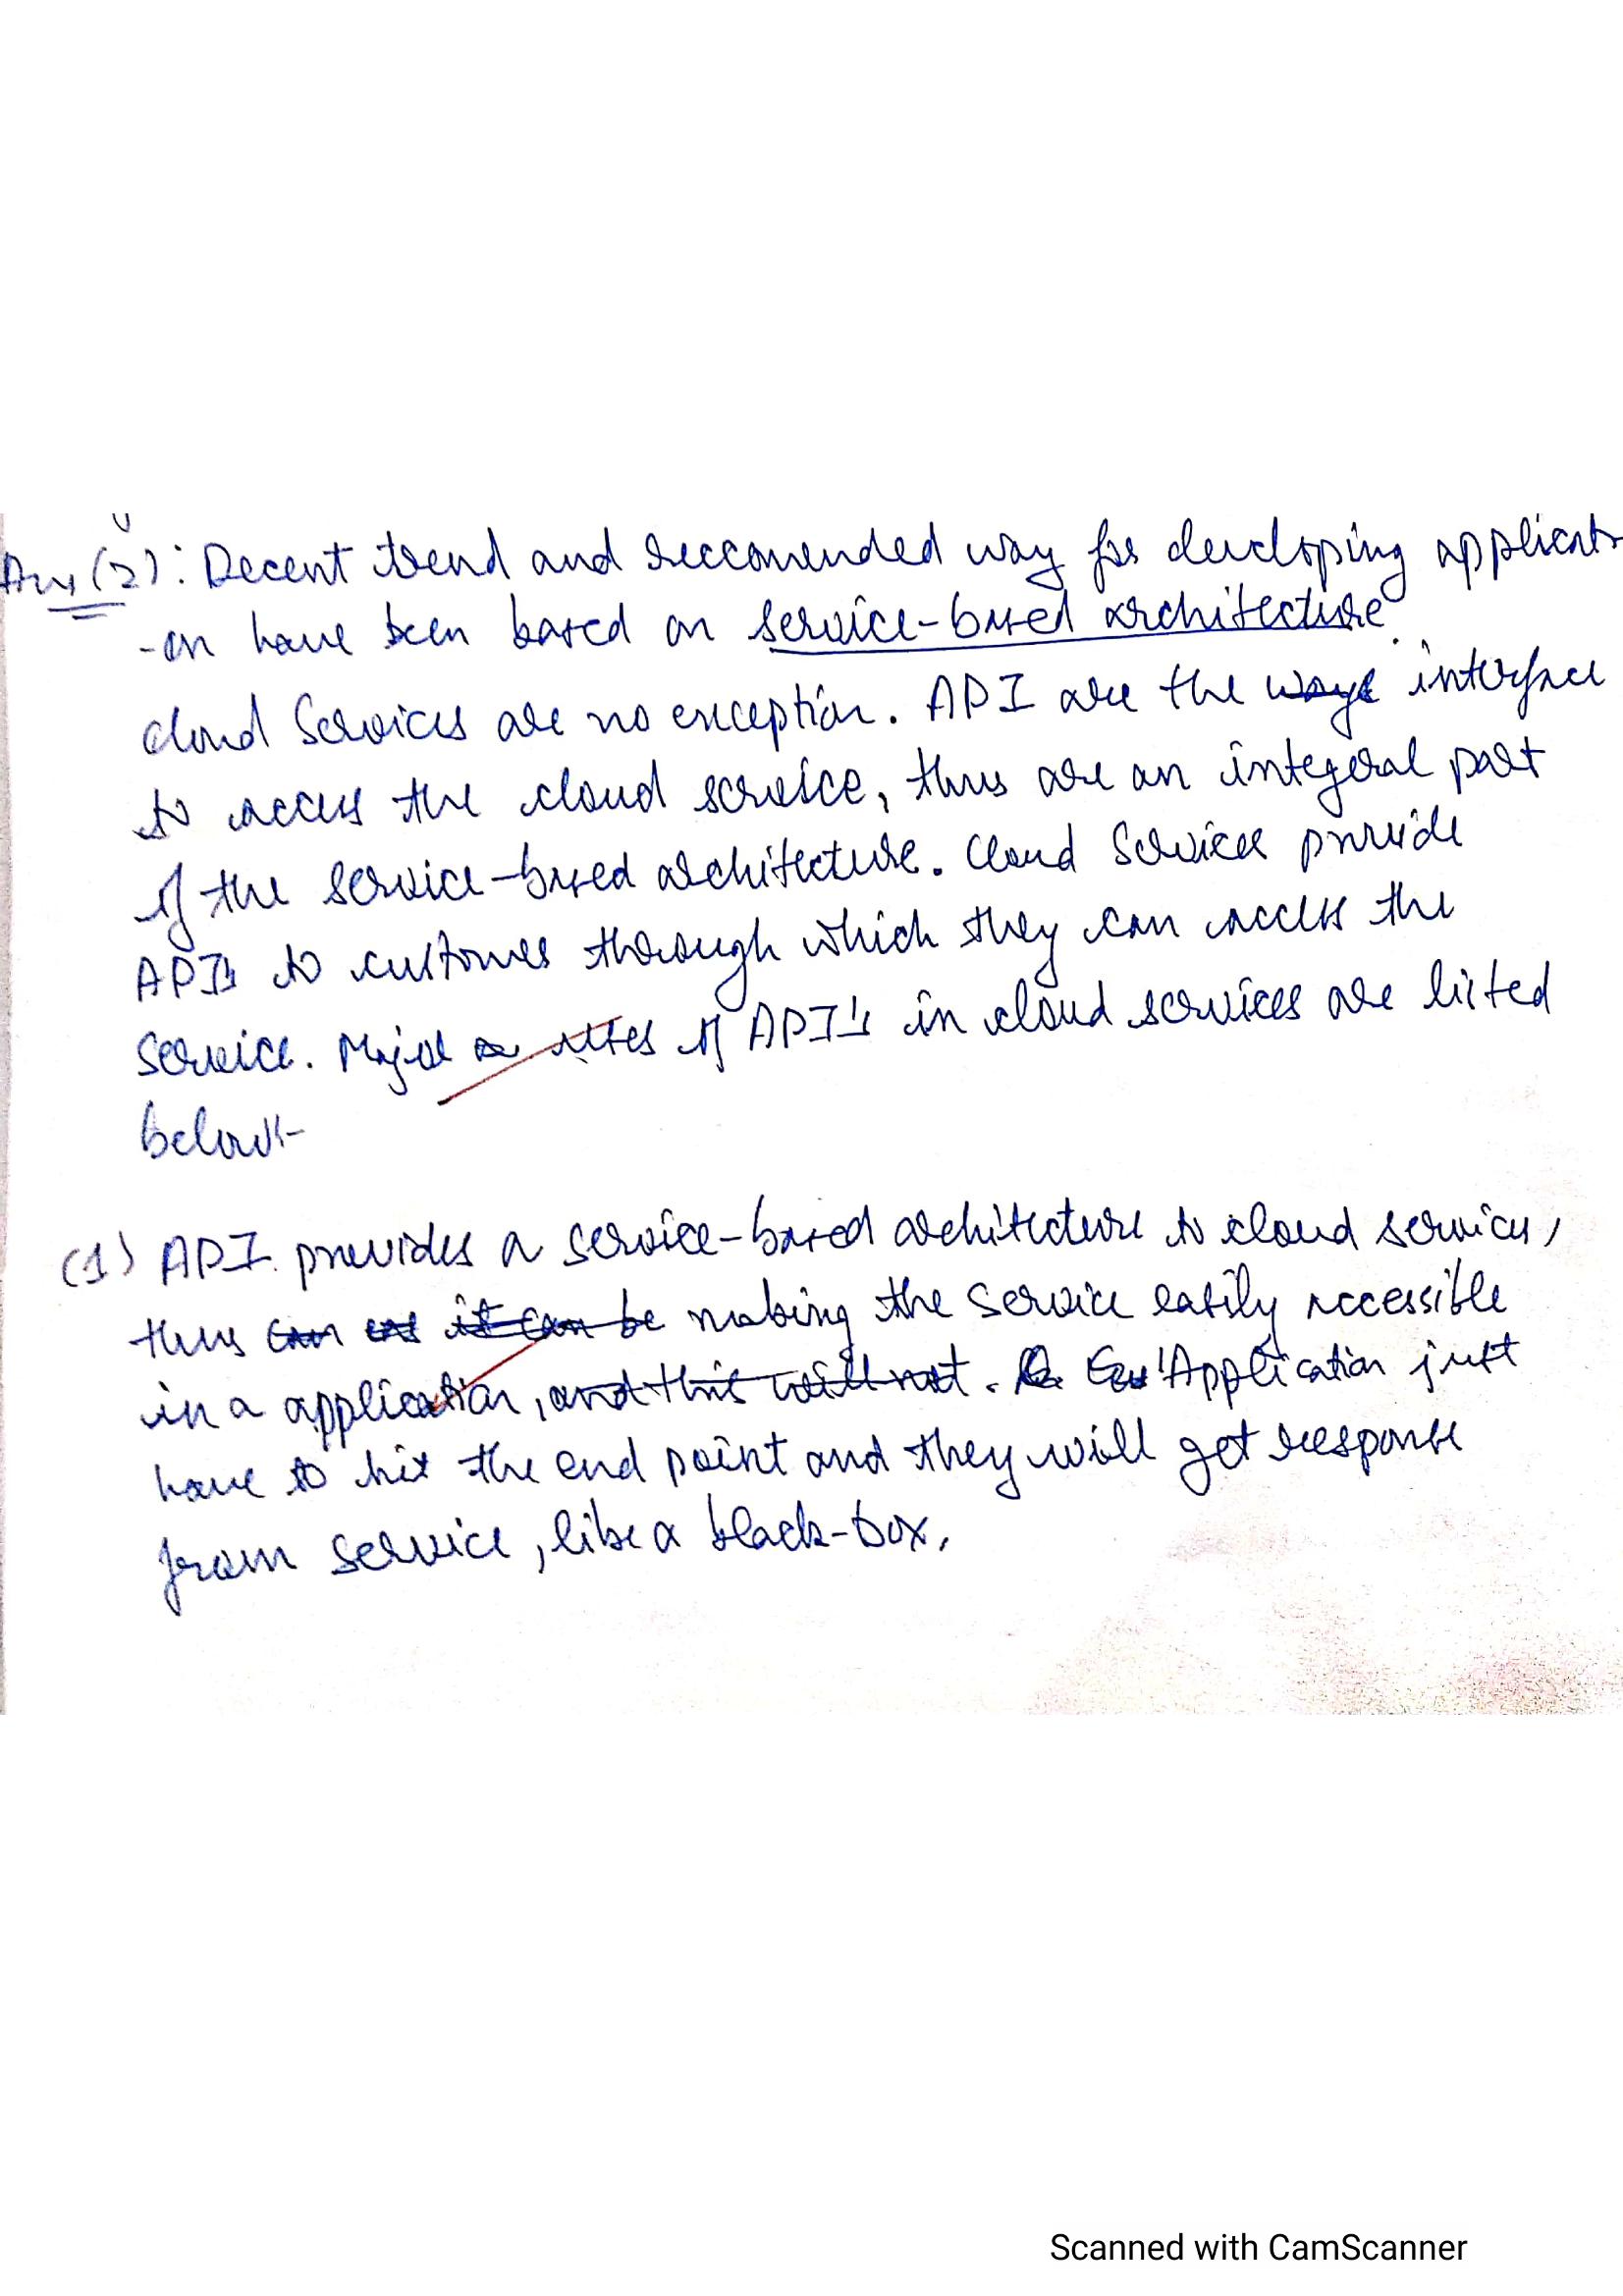 Ans(2): Decent trend and reccomended way for developing applicati
-on have been based on service-based architecture.
cloud Services are no exception. API are the ways interface
to access the cloud service, thus are an integeral part
of the service-based architecture. Cloud Services provide
API's to customes through which they can access the
service. Major uses of API's in cloud services are listed
below:-
(1) API provides a service-based architecture to cloud services,
thus can it can be making the service easily accessible
in a application, and this will not. Application just
have to hit the end point and they will get response
from service, like a black-box.
Scanned with CamScanner